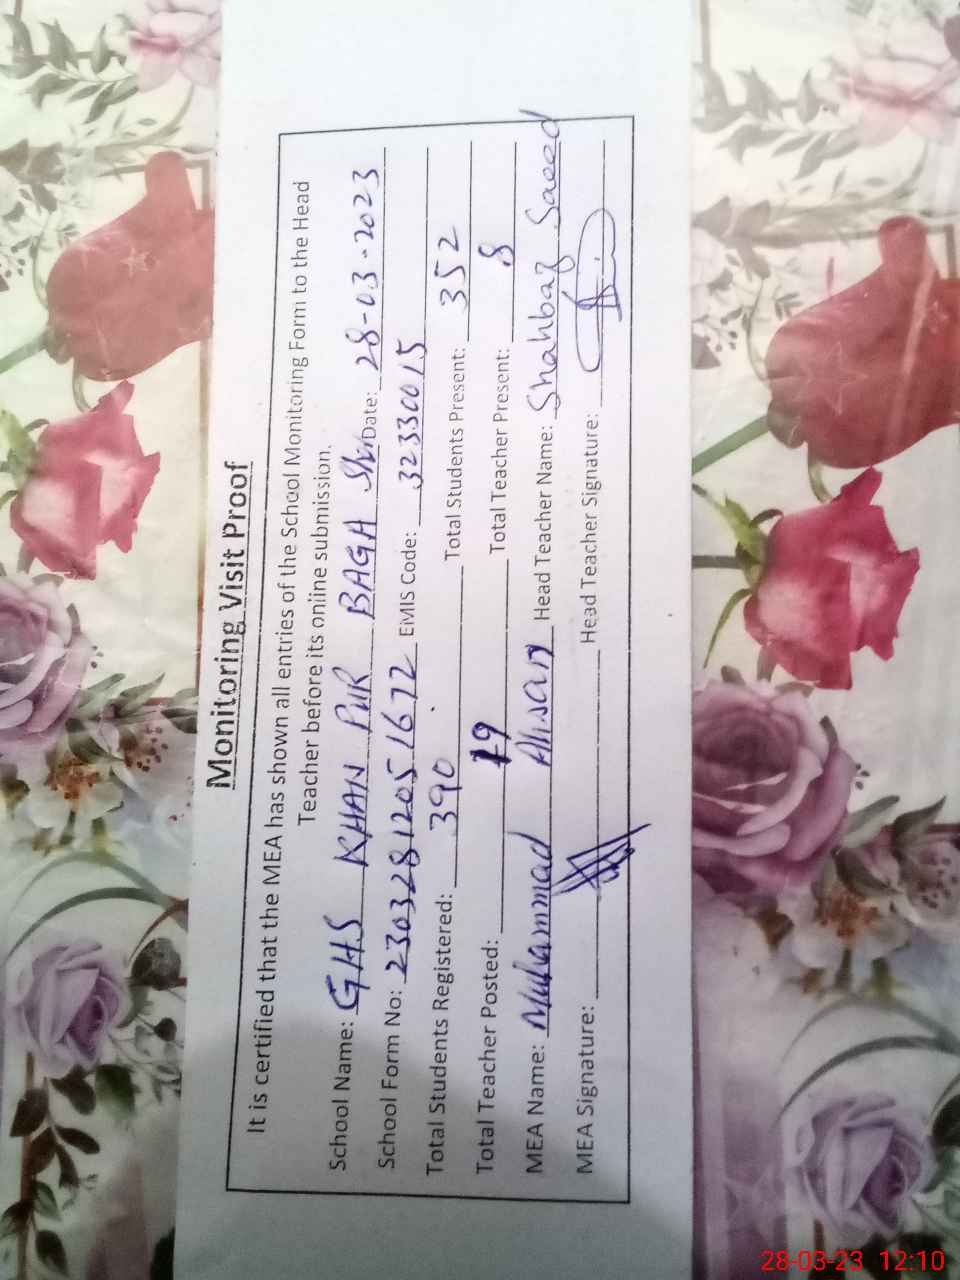 Monitoring Visit Proof
It is certified that the MEA has shown all entries of the School Monitoring Form to the Head
Teacher before its online submission.
School Name: GHS KHAN PUR BAGA Sher Date: 28-03-2023
School Form No: 23032812051672 EMIS Code: 32330015
Total Students Registered: 390 Total Students Present: 352
Total Teacher Posted: 19 Total Teacher Present: 8
MEA Name: Muhammad Ahsan Head Teacher Name: Shahbaz Saeed
MEA Signature: Head Teacher Signature:
28-03-23 12:10